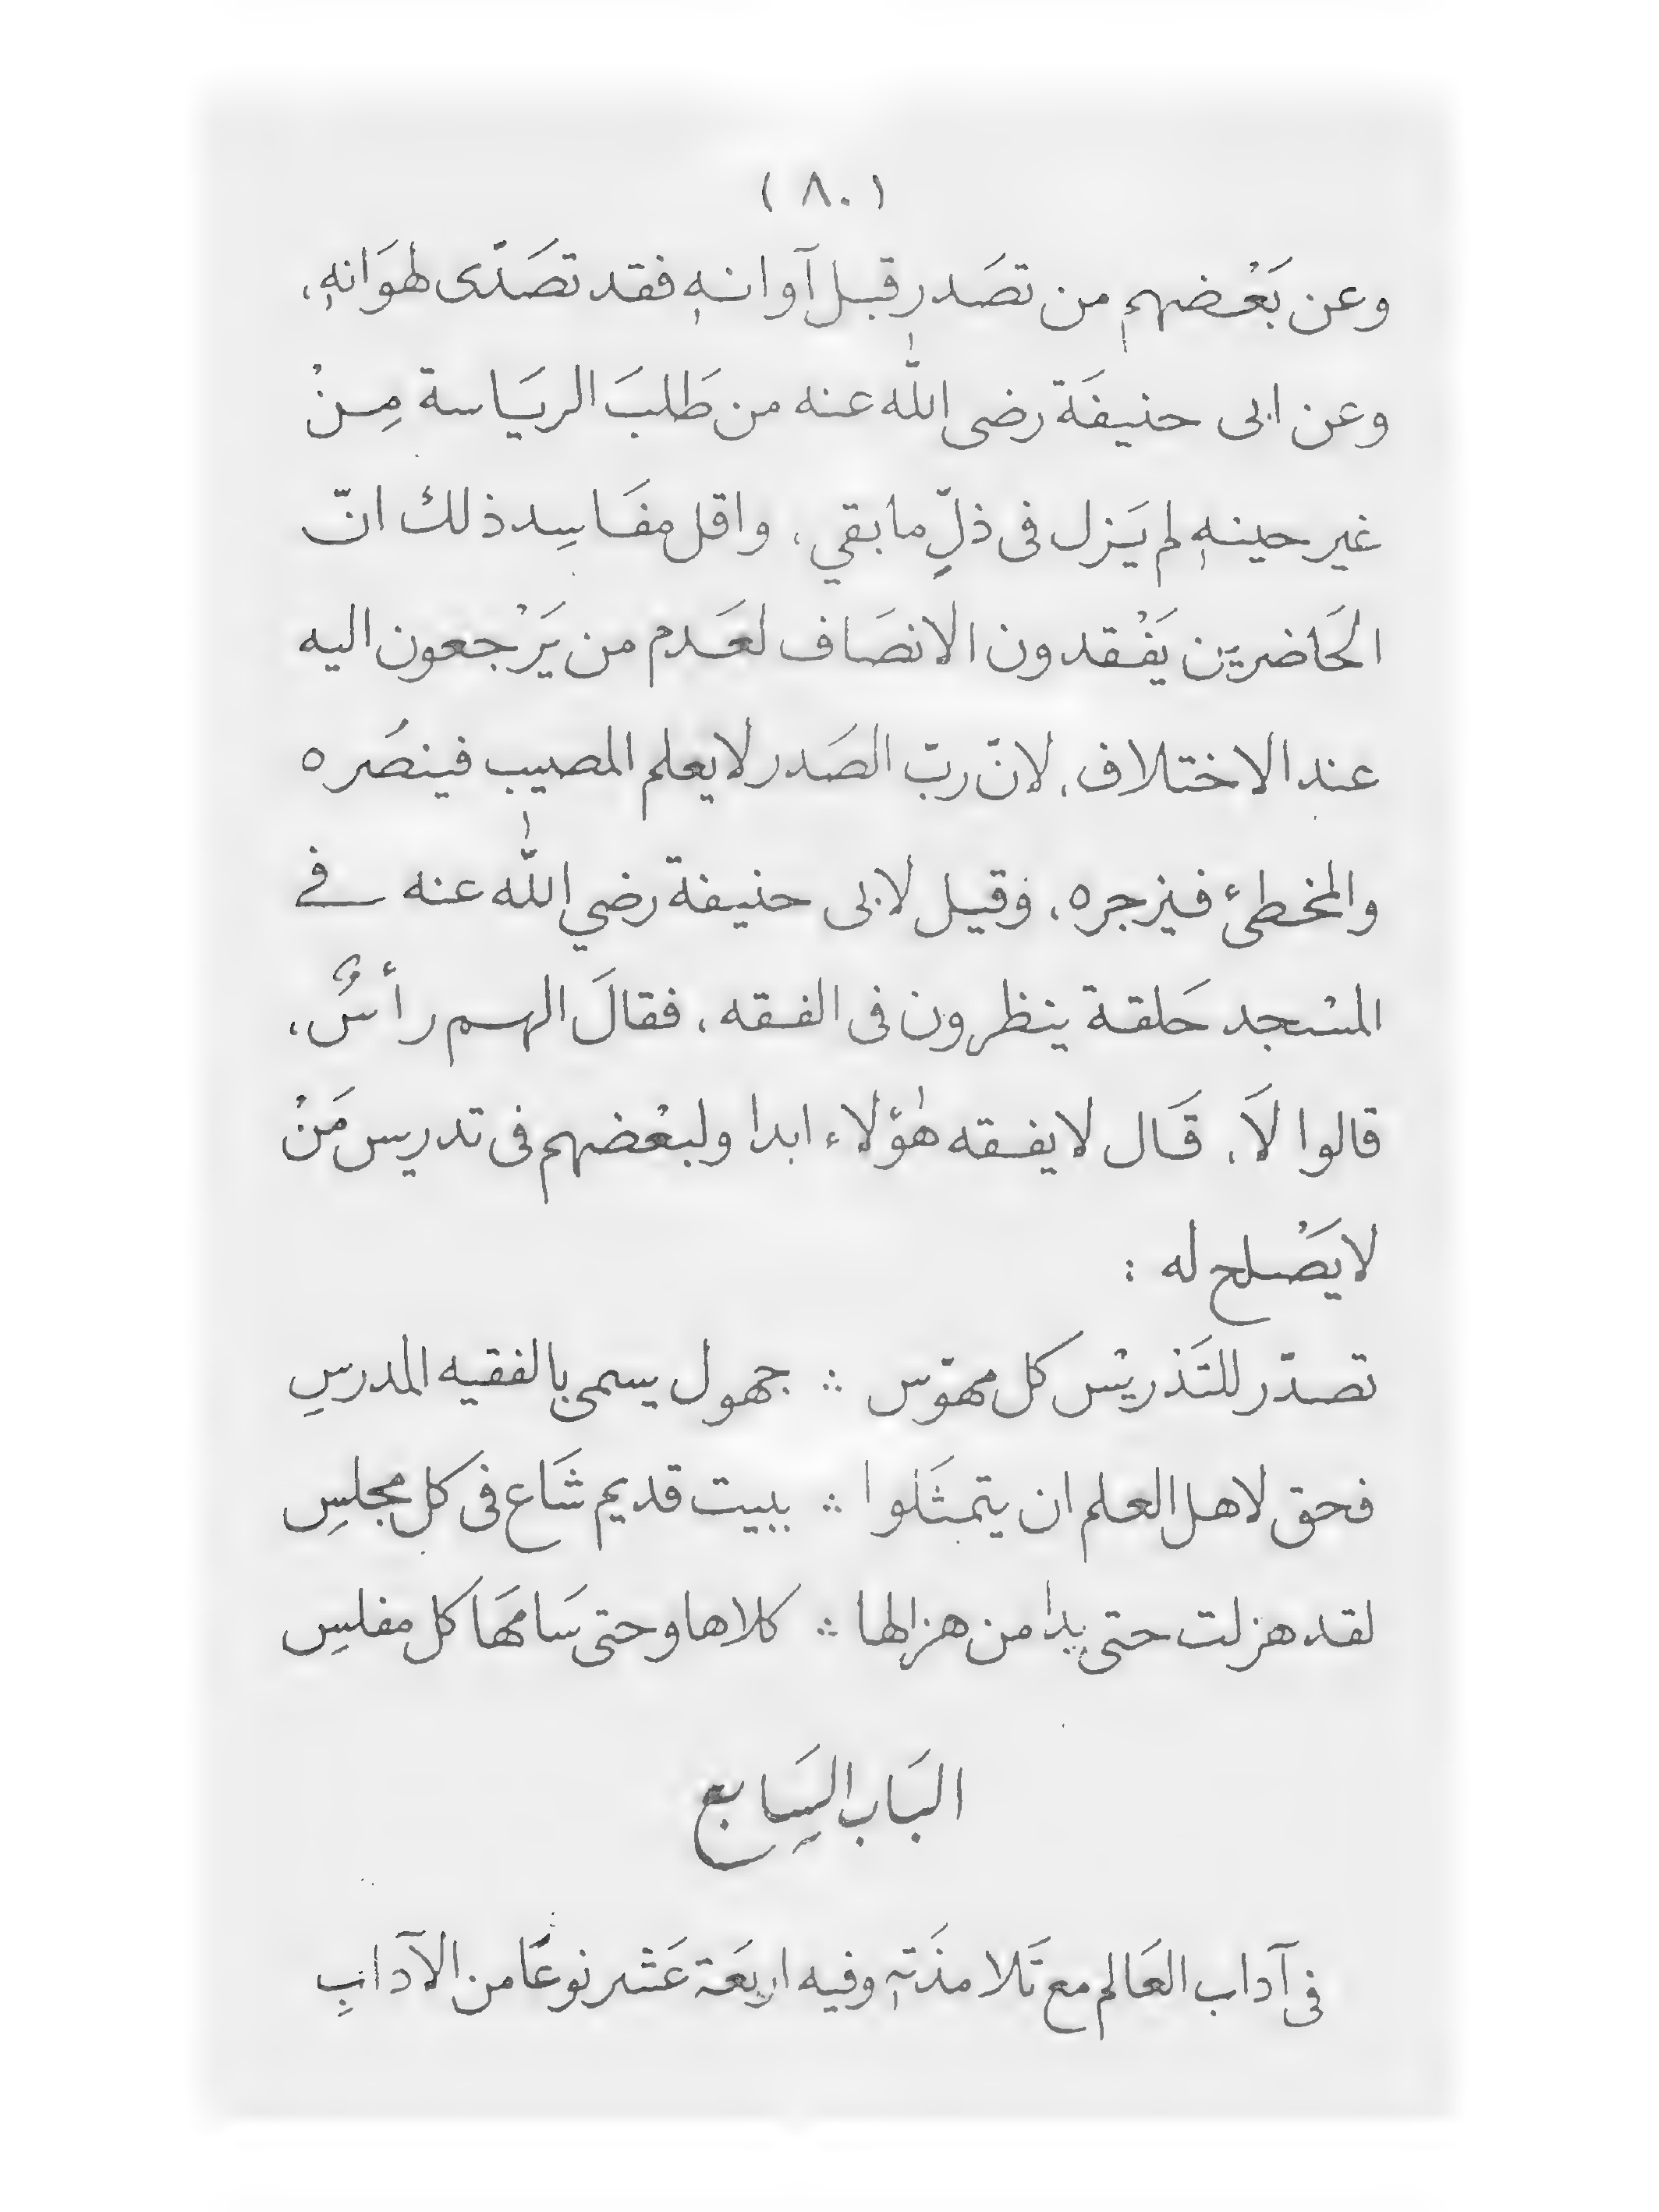 ( ٨٠ )
وعن بَعْضهم من تصَدر قبل آوانهٖ فقد تصَدّى لهوَانهٖ،
وعن ابى حنيفَة رضى اللّٰه عنه من طَلبَ الريَاسة مِنْ
غير حينهٖ لم يَزل فى ذلٍّ ما بقي، واقل مفَاسِد ذلك انّ
الحَاضريَن يَفْقدون الانصَاف لعَدم من يَرْجعون اليه
عند الاختلاف، لانّ ربّ الصَدر لا يعلم المصيب فينصُره
والمخطئ فيزجره، وقيل لابى حنيفة رضي اللّٰه عنه فے
المسْجد حَلقة ينظرون فى الفقه، فقالَ الهم رأسٌ،
قالوا لَا، قَال لا يفقه هٰؤلاء ابدا ولبعْضهم فى تدريس مَنْ
لا يَصْلح له :
تصدّر للتَذريْس كل مهوّس ∴ جهول يسمى بالفقيه المدرسِ
فحق لاهل العلم ان يتمثَلوا ∴ ببيت قديم شَاع فى كل مجلسِ
لقد هزلت حتى بدا من هزالها ∴ كلاها وحتى سَامهَا كل مفلسِ
البَاب السَابع
فى آداب العَالم مع تَلامذَتهٖ وفيه اربعَة عَشر نوعًا من الآدابِ